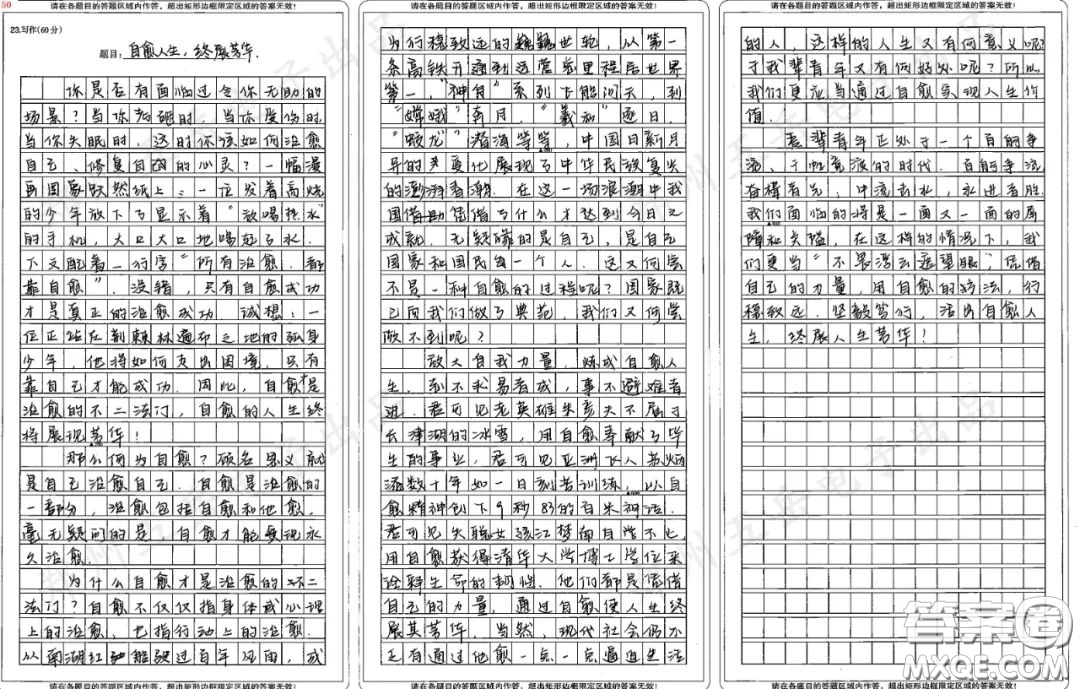 50
请在各题目的答题区域内作答，超出矩形边框限定区域的答案无效！
23.写作(60分)
题目：自愈人生，终展芳华.
你是否有面临过令你无助的
场景？当你 时，当你受伤时，
当你失眠时，这时你该如何治愈
自己，修复自己的心灵？一幅漫
画图景跃然纸上：一位发着高烧
的少年放下了显示着“多喝热水”
的手机，大口大口地喝起了水.
下文配着一行字“所有治愈，都
靠自愈”.没错，只有自愈成功
才是真正的治愈成功 试想：一
位正站在荆棘林遍布之地的孤身
少年，他将如何走出困境，只有
靠自己才能成功.因此，自愈才是
治愈的不二法门，自愈的人生终
将展现芳华！
那么何为自愈？顾名思义就
是自己治愈自己.自愈是治愈的
一部分，治愈包括自愈和他愈，
毫无疑问的是，自愈才能实现永
久治愈.
为什么自愈才是治愈的不二
法门？自愈不仅仅指身体或心理
上的治愈，也指行动上的治愈.
从南湖红船驶过百年风雨，成
请在各题目的答题区域内作答，超出矩形边框限定区域的答案无效！
请在各题目的答题区域内作答，超出矩形边框限定区域的答案无效！
为行稳致远的巍巍巨轮，从第一
条高铁开通到运营里程居世界
第一，“神舟”系列飞船问天，到
“嫦娥”奔月，“羲和”逐日，
“蛟龙”潜海等等，中国日新月
异的变化展现了中华民族复兴
的澎湃春潮.在这一场浪潮中我
国凭借了什么才达到今日之
成就，无疑靠的是自己，是自己
国家和国民每一个人.这又何尝
不是一种自愈的过程呢？国家既
已向我们做了典范，我们又何尝
做不到呢？
放大自我力量，炼成自愈人
生.志不求易者成，事不避难者
进.君可见老英雄朱彦夫不屈于
长津湖的冰雪，用自愈奉献了毕
生的事业，君可见亚洲飞人苏炳
添数十年如一日刻苦训练，以自
愈精神创下9秒83的百米神话.
君可见失聪女孩江梦南自学不止，
用自愈获得清华大学博士学位来
诠释生命的韧性.他们都是凭借
自己的力量，通过自愈使人生终
展其芳华.当然，现代社会仍不
乏有通过他愈一点一点逼近生活
请在各题目的答题区域内作答，超出矩形边框限定区域的答案无效！
请在各题目的答题区域内作答，超出矩形边框限定区域的答案无效！
的人，这样的人生又有何意义呢？
于我辈青年又有何好处呢？所以
我们更应当通过自愈实现人生价
值.
吾辈青年正处于一个百舸争
流，千帆竞渡的时代.百舸争流
奋楫者先，中流击水，永进者胜.
我们面临的将是一面又一面的屏
障和关隘，在这样的情况下，我
们更当“不畏浮云遮望眼”，凭借
自己的力量，用自愈的方法，行
稳致远.坚毅笃行，活出自愈人
生，终展人生芳华！
请在各题目的答题区域内作答，超出矩形边框限定区域的答案无效！
答案圈
MXQE.COM